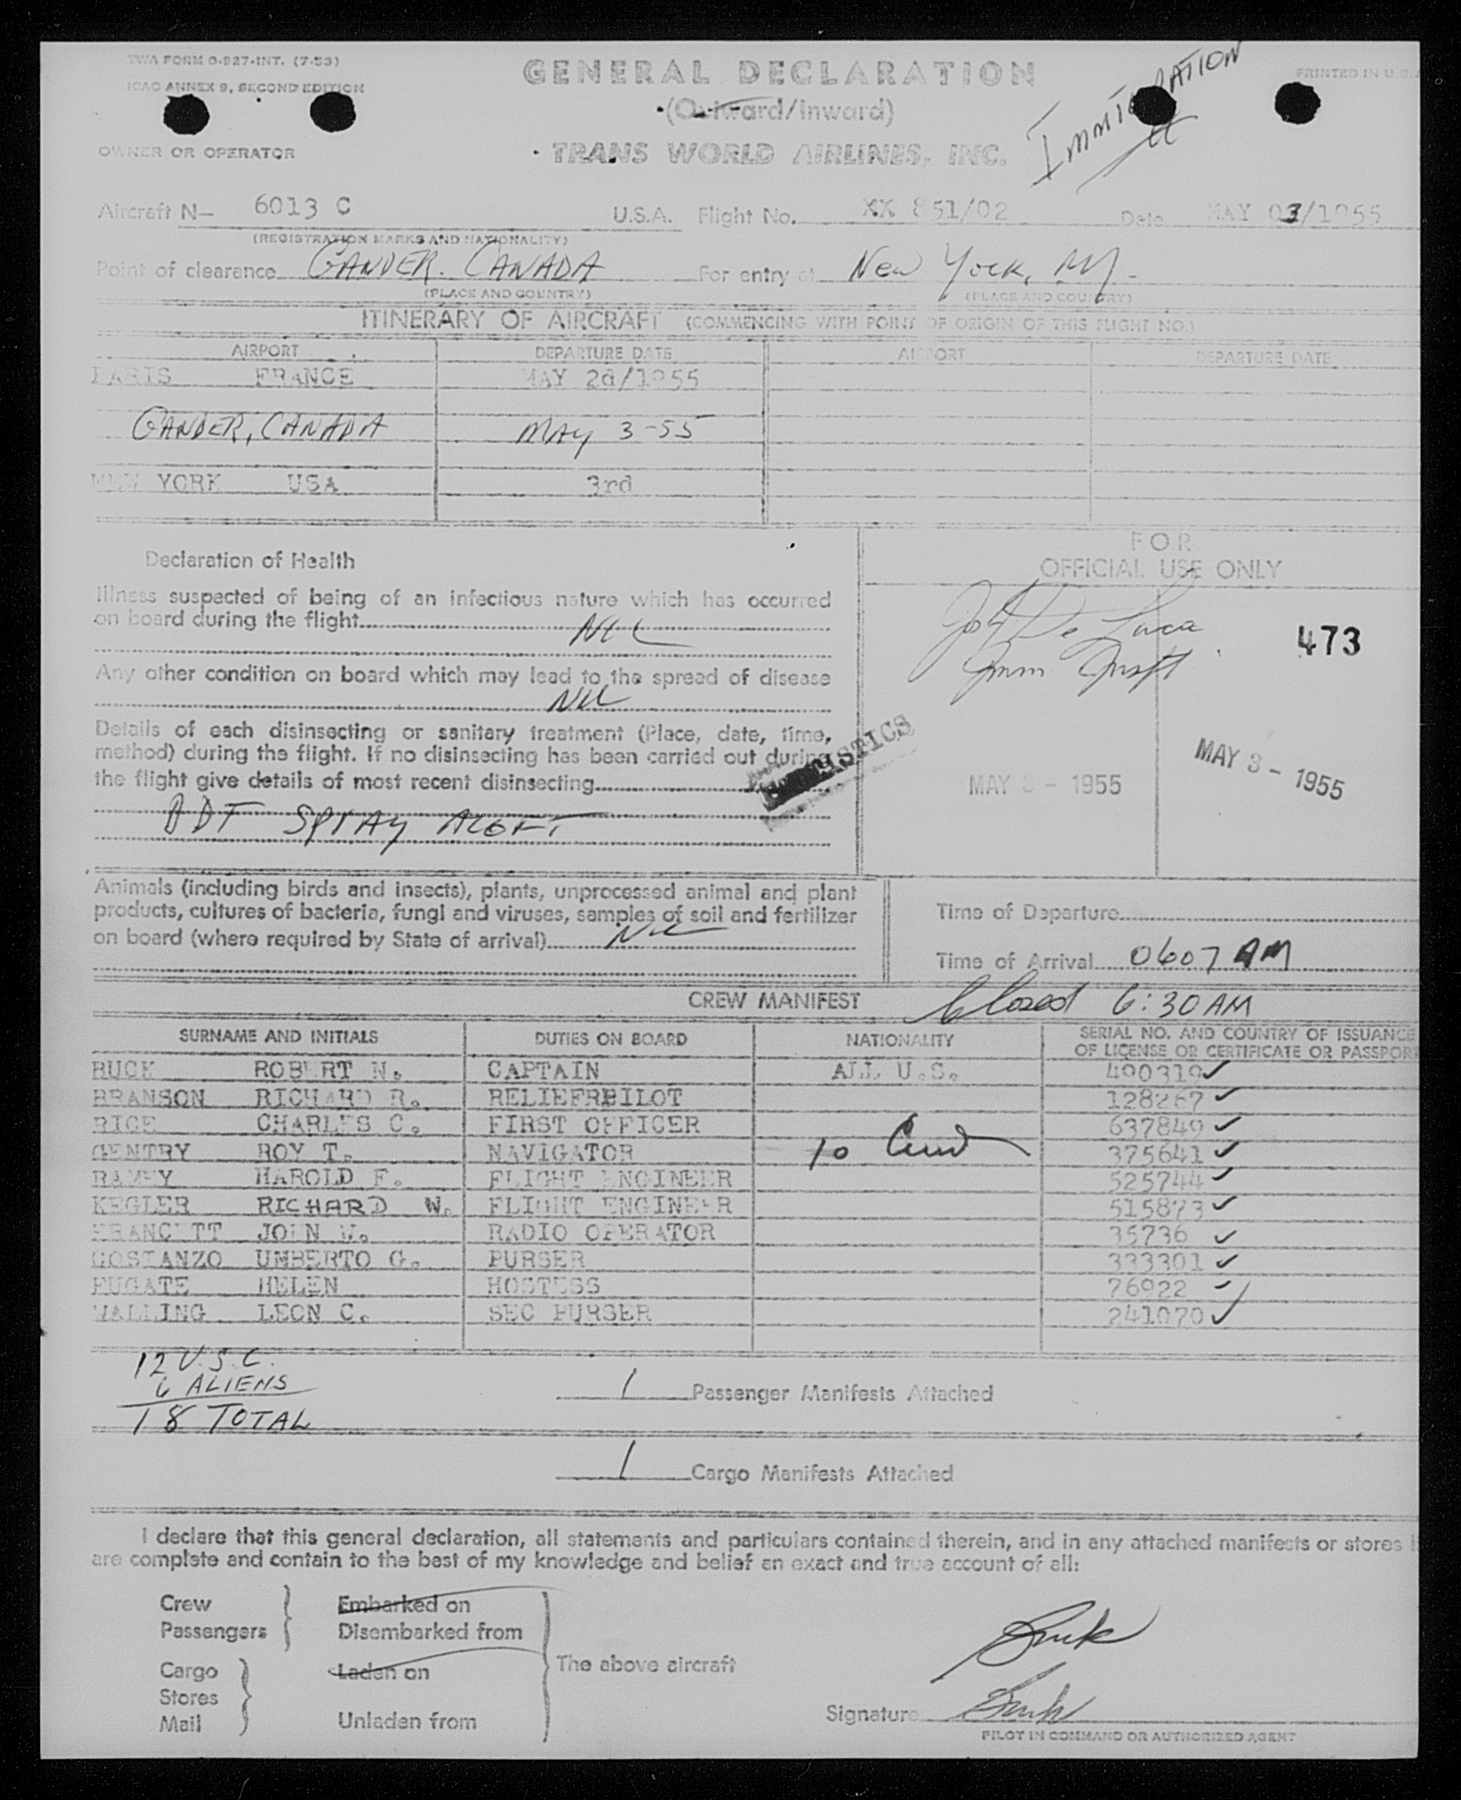 TWA FORM O-927-INT. (7-53)
ICAO ANNEX 9, SECOND EDITION
PRINTED IN U.S.
GENERAL DECLARATION
(Outward/Inward)
IMMIGRATION
OWNER OR OPERATOR
TRANS WORLD AIRLINES, INC.
Aircraft N- 6013 C U.S.A. Flight No. XX 851/02 Date MAY 03/1955
(REGISTRATION MARKS AND NATIONALITY)
Point of clearance GANDER. CANADA For entry at New York, NY.
(PLACE AND COUNTRY) (PLACE AND COUNTRY)
ITINERARY OF AIRCRAFT (COMMENCING WITH POINT OF ORIGIN OF THIS FLIGHT NO.)
AIRPORT DEPARTURE DATE AIRPORT DEPARTURE DATE
PARIS FRANCE MAY 2d/1955
GANDER, CANADA MAY 3-55
NEW YORK USA 3rd
FOR
OFFICIAL USE ONLY
Declaration of Health
Illness suspected of being of an infectious nature which has occurred
on board during the flight NIL
De Luca
Imm Inspt
473
Any other condition on board which may lead to the spread of disease
NIL
Details of each disinsecting or sanitary treatment (Place, date, time,
method) during the flight. If no disinsecting has been carried out during
the flight give details of most recent disinsecting
STATISTICS
MAY 3 - 1955 MAY 3 - 1955
DDT SPRAY ALOFT
Animals (including birds and insects), plants, unprocessed animal and plant
products, cultures of bacteria, fungi and viruses, samples of soil and fertilizer
on board (where required by State of arrival) NIL
Time of Departure
Time of Arrival 0607 AM
CREW MANIFEST Closed 6:30 AM
SURNAME AND INITIALS DUTIES ON BOARD NATIONALITY SERIAL NO. AND COUNTRY OF ISSUANCE
OF LICENSE OR CERTIFICATE OR PASSPORT
BUCK ROBERT N. CAPTAIN ALL U.S. 490319 ✓
BRANSON RICHARD R. RELIEFPILOT 128267 ✓
RICE CHARLES C. FIRST OFFICER 637849 ✓
GENTRY ROY T. NAVIGATOR 10 Crew 375641 ✓
RAMEY HAROLD F. FLIGHT ENGINEER 525744 ✓
KEGLER RICHARD W. FLIGHT ENGINEER 515873 ✓
JOHN W. RADIO OPERATOR 35736 ✓
COSTANZO UMBERTO G. PURSER 333301 ✓
FUGATE HELEN HOSTESS 76922 ✓
WALLING LEON C. SEC PURSER 241070 ✓
12 U.S.C.
6 ALIENS
18 TOTAL
1 Passenger Manifests Attached
1 Cargo Manifests Attached
I declare that this general declaration, all statements and particulars contained therein, and in any attached manifests or stores
are complete and contain to the best of my knowledge and belief an exact and true account of all:
Crew Embarked on
Passengers Disembarked from
Cargo Laden on The above aircraft
Stores
Mail Unladen from
Buck
Signature Buck
PILOT IN COMMAND OR AUTHORIZED AGENT